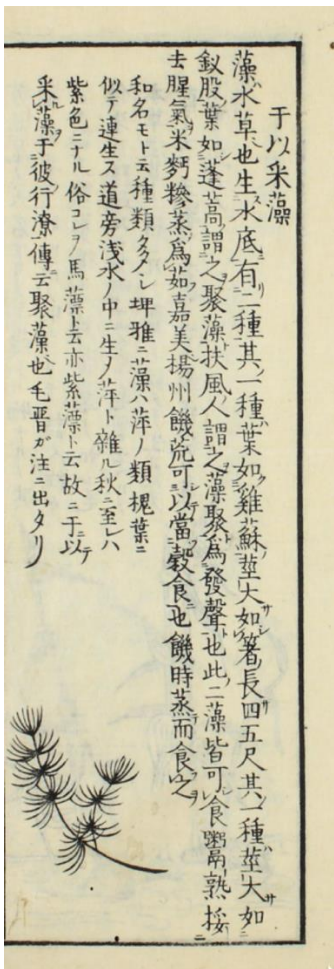 于以采藻
藻水草也生水底有二種其一種葉如雞蘇莖大如箸長四五尺其一種莖大如
釵股葉如蓬蒿謂之聚藻扶風人謂之藻聚為發聲也此二藻皆可食鬻熟挼
去腥氣米麪糝蒸為茹嘉美揚州饑荒可以當穀食也饑時蒸而食之
和名モト云種類多シ埤雅ニ藻ハ萍ノ類槐葉ニ
似テ連生ス道旁浅水ノ中ニ生ノ萍ト雜ル秋ニ至レハ
紫色ニナル俗コレヲ馬薸ト云亦紫薸ト云故ニ于以テ
采藻于彼行潦傳云聚藻也毛晋ガ注ニ出タリ